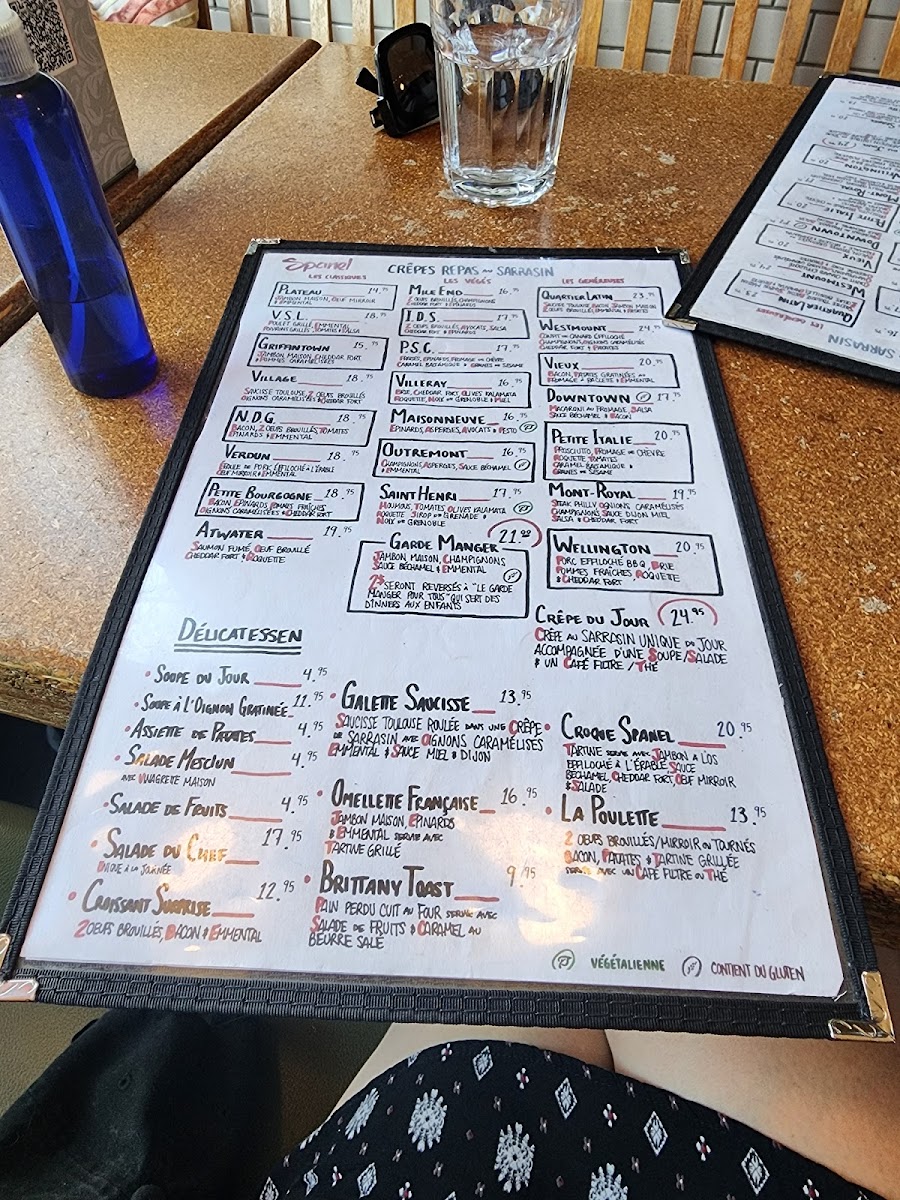 Spanel
CRÊPES REPAS AU SARRASIN
LES CLASSIQUES
PLATEAU 14.95
JAMBON MAISON, ŒUF MIROIR
& EMMENTAL
V.S.L. 18.95
POULET GRILLÉ, EMMENTAL
POIVRONS GRILLÉS, TOMATES & SALSA
GRIFFINTOWN 15.95
JAMBON MAISON, CHEDDAR FORT
& POMMES CARAMÉLISÉES
VILLAGE 18.95
SAUCISSE TOULOUSE, 2 ŒUFS BROUILLÉS
OIGNONS CARAMÉLISÉES & CHEDDAR FORT
N.D.G. 18.95
BACON, 2 ŒUFS BROUILLÉS, TOMATES
EPINARDS & EMMENTAL
VERDUN 18.95
ÉPAULE DE PORC EFFILOCHÉ À L'ÉRABLE
ŒUF MIROIR & EMMENTAL
PETITE BOURGOGNE 18.95
BACON, EPINARDS, POMMES FRAÎCHES
OIGNONS CARAMÉLISÉES & CHEDDAR FORT
ATWATER 19.95
SAUMON FUMÉ, ŒUF BROUILLÉ
CHEDDAR FORT & ROQUETTE
LES VÉGÉS
MILE END 16.95
2 ŒUFS BROUILLÉS, CHAMPIGNONS
CHEDDAR FORT & EPINARDS
I.D.S. 17.95
2 ŒUFS BROUILLÉS, AVOCATS, SALSA
CHEDDAR FORT & EPINARDS
P.S.C. 17.95
POIRES, EPINARDS, FROMAGE DE CHÈVRE
CARAMEL BALSAMIQUE & GRAINES DE SÉSAME
VILLERAY 16.95
BRIE, CHEDDAR FORT, OLIVES KALAMATA
ROQUETTE, NOIX DE GRENOBLE & MIEL
MAISONNEUVE 16.95
EPINARDS, ASPERGES, AVOCATS & PESTO
OUTREMONT 16.95
CHAMPIGNONS, ASPERGES, SAUCE BÉCHAMEL
& EMMENTAL
SAINT HENRI 17.95
HOUMOUS, TOMATES, OLIVES KALAMATA
ROQUETTE, SIROP DE GRENADE &
NOIX DE GRENOBLE
21.00
GARDE MANGER
JAMBON MAISON, CHAMPIGNONS
SAUCE BÉCHAMEL & EMMENTAL
2$ SERONT REVERSÉS À "LE GARDE
MANGER POUR TOUS" QUI SERT DES
DÎNERS AUX ENFANTS
LES GÉNÉREUSES
QUARTIER LATIN 23.95
SAUCISSE TOULOUSE, BACON, JAMBON MAISON
2 ŒUFS BROUILLÉS, EMMENTAL & PATATES
WESTMOUNT 24.95
CONFIT DE CANARD EFFILOCHÉ
CHAMPIGNONS, OIGNONS CARAMÉLISÉS
CHEDDAR FORT & PATATES
VIEUX 20.95
BACON, PATATES GRATINÉES AU
FROMAGE À RACLETTE & EMMENTAL
DOWNTOWN 17.95
MACARONI AU FROMAGE, SALSA
SAUCE BÉCHAMEL & BACON
PETITE ITALIE 20.95
PROSCIUTTO, FROMAGE DE CHÈVRE
ROQUETTE, TOMATES
CARAMEL BALSAMIQUE &
GRAINES DE SÉSAME
MONT-ROYAL 19.95
STEAK PHILLY, OIGNONS CARAMÉLISÉS
CHAMPIGNONS, SAUCE DIJON MIEL
SALSA & CHEDDAR FORT
WELLINGTON 20.95
PORC EFFILOCHÉ BBQ, BRIE
POMMES FRAÎCHES, ROQUETTE
& CHEDDAR FORT
CRÊPE DU JOUR 24.95
CRÊPE AU SARRASIN UNIQUE DU JOUR
ACCOMPAGNÉE D'UNE SOUPE/SALADE
& UN CAFÉ FILTRE / THÉ
DÉLICATESSEN
• SOUPE DU JOUR 4.95
• SOUPE À L'OIGNON GRATINÉE 11.95
• ASSIETTE DE PATATES 4.95
• SALADE MESCLUN 4.95
AVEC VINAIGRETTE MAISON
• SALADE DE FRUITS 4.95
• SALADE DU CHEF 17.95
UNIQUE À LA JOURNÉE
• CROISSANT SURPRISE 12.95
2 OEUFS BROUILLÉS, BACON & EMMENTAL
• GALETTE SAUCISSE 13.95
SAUCISSE TOULOUSE ROULÉE DANS UNE CRÊPE
DE SARRASIN AVEC OIGNONS CARAMÉLISES
EMMENTAL & SAUCE MIEL & DIJON
• OMELLETTE FRANÇAISE 16.95
JAMBON MAISON, EPINARDS
& EMMENTAL SERVIE AVEC
TARTINE GRILLÉ
• BRITTANY TOAST 9.95
PAIN PERDU CUIT AU FOUR SERVIE AVEC
SALADE DE FRUITS & CARAMEL AU
BEURRE SALÉ
• CROQUE SPANEL 20.95
TARTINE SERVIE AVEC JAMBON À L'OS
EFFILOCHÉ À L'ÉRABLE, SAUCE
BÉCHAMEL, CHEDDAR FORT, ŒUF MIRROIR
& SALADE
• LA POULETTE 13.95
2 OEUFS BROUILLÉS/MIROIR OU TOURNÉS
BACON, PATATES & TARTINE GRILLÉE
SERVIE AVEC UN CAFÉ FILTRE OU THÉ
VÉGÉTALIENNE
CONTIENT DU GLUTEN
SARRASIN
LES GÉNÉREUSES
QUARTIER LATIN
WESTMOUNT
VIEUX
DOWNTOWN
PETITE ITALIE
MONT-ROYAL
WELLINGTON